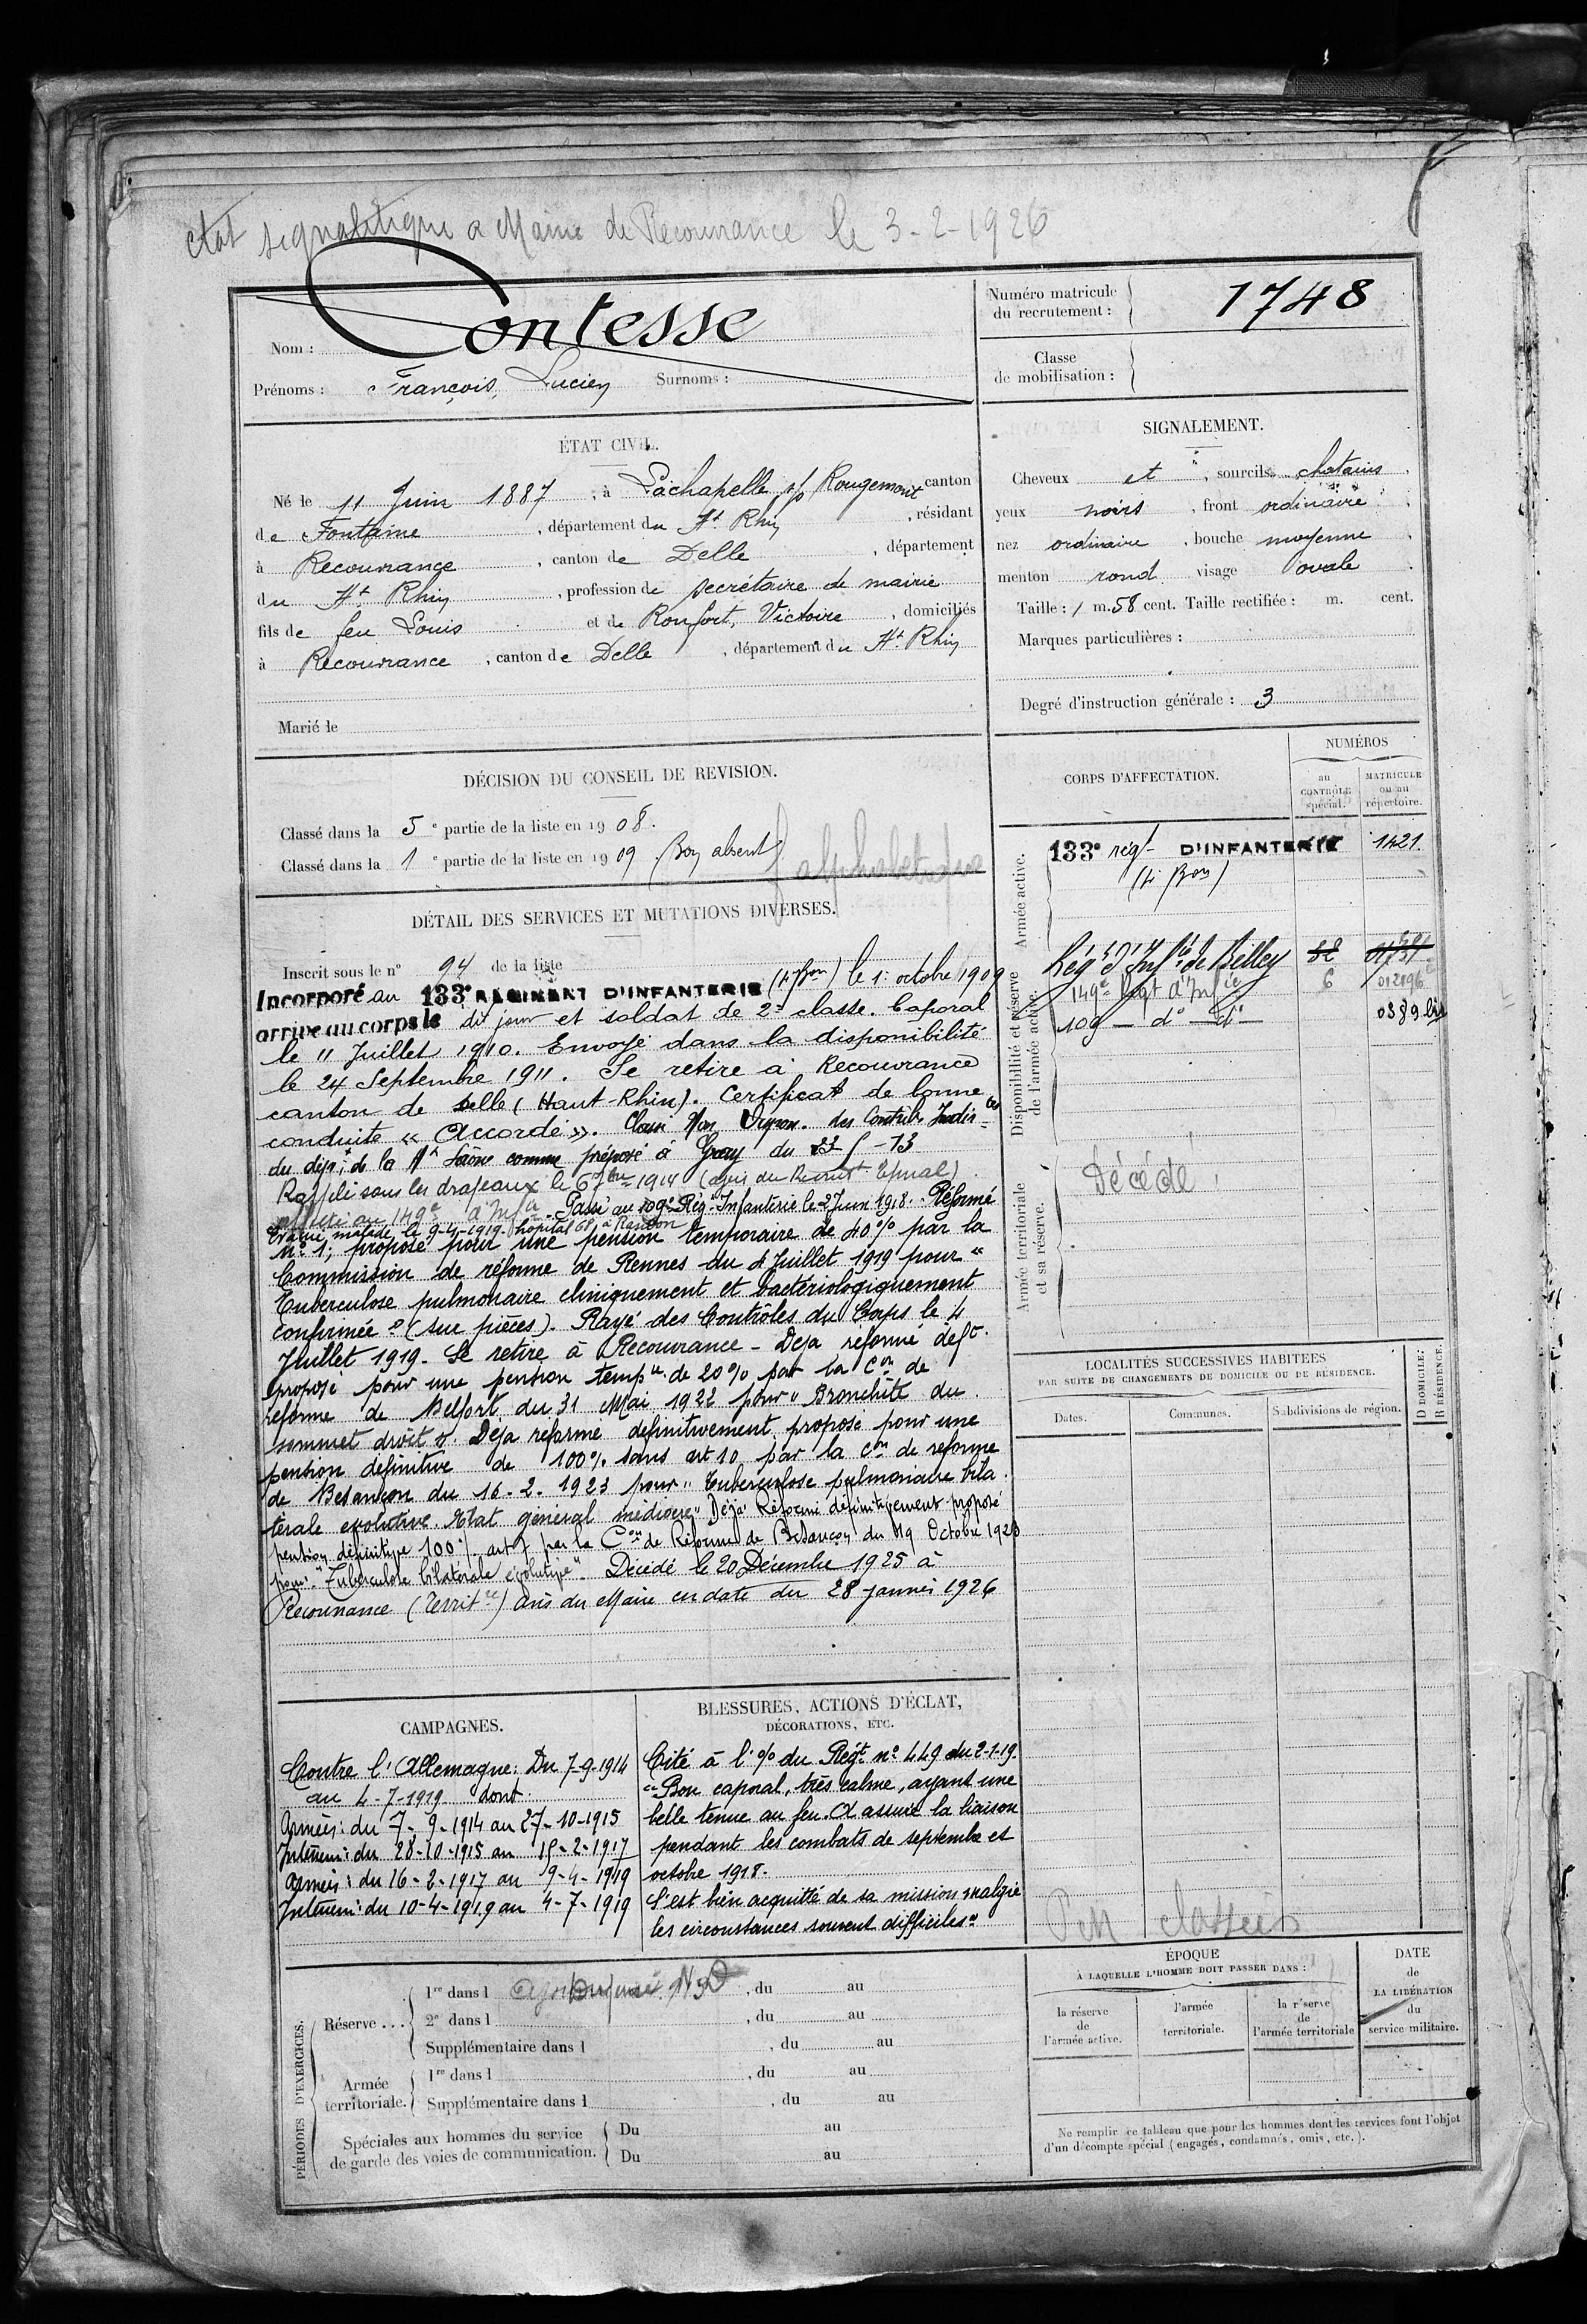 Etat signalétique a Mairie de Recouvrance le 3-2-1926
Nom : Contesse
Prénoms : François, Lucien Surnoms :
Numéro matricule
du recrutement : 1748
Classe
de mobilisation :
ÉTAT CIVIL.
Né le 11 Juin 1887, à Lachapelle s/s Rougemont canton
de Fontaine, département du Ht Rhin, résidant
à Recouvrance, canton de Delle, département
du Ht Rhin, profession de secrétaire de mairie
fils de feu Louis et de Ronfort, Victoire, domiciliés
à Recouvrance, canton de Delle, département du Ht Rhin
Marié le
SIGNALEMENT.
Cheveux et, sourcils chatains,
yeux noirs, front ordinaire,
nez ordinaire, bouche moyenne,
menton rond visage ovale.
Taille : 1 m. 58 cent. Taille rectifiée : m. cent.
Marques particulières :
Degré d'instruction générale : 3
DÉCISION DU CONSEIL DE REVISION.
Classé dans la 5e partie de la liste en 1908.
Classé dans la 1e partie de la liste en 1909. Bon absent
DÉTAIL DES SERVICES ET MUTATIONS DIVERSES.
Inscrit sous le n° 94 de la liste
Incorporé au 133e RÉGIMENT D'INFANTERIE (4e Bon) le 1er octobre 1909
arrivé au corps le dit jour et soldat de 2e classe. Caporal
le 11 Juillet 1910. Envoyé dans la disponibilité
le 24 Septembre 1911. Se retire à Recouvrance
canton de Delle (Haut-Rhin). Certificat de bonne
conduite « Accordé ». Classé Non Dispon. des Contrib. Indir.
du dépt de la Hte Saône comme préposé à Gray du
Rappelé sous les drapeaux le 6 7bre 1914 (avis du Recrutt Epinal)
au 149e d'Infie. Passé au 109e Rég. Infanterie le 2 Juin 1918. Réformé
Evacué malade le 9-4-1919. hôpital 68 à
N° 1; proposé pour une pension temporaire de 40% par la
Commission de réforme de Rennes du 4 Juillet 1919 pour "
Tuberculose pulmonaire cliniquement et bactériologiquement
confirmée" (sur pièces). Rayé des Contrôles du Corps le 4
Juillet 1919. Se retire à Recouvrance - Deja réformé deft.
proposé pour une pension tempre de 20% par la Con de
reforme de Belfort du 31 Mai 1922 pour "Bronchite du
sommet droit". Deja reformé definitivement proposé pour une
pension définitive de 100% sans art 10 par la Con de reforme
de Besançon du 16-2-1923 pour "Tuberculose pulmonaire bila-
térale evolutive. Etat général médiocre" Déjà Réformé définitivement proposé
pension définitive 100% art 7 par la Con de Réforme de Besançon du 19 Octobre 1923
pour "Tuberculose bilatérale évolutive". Décédé le 20 Décembre 1925 à
Recouvrance (Territre) Avis du Maire en date du 28 janvier 1926
CORPS D'AFFECTATION.
NUMÉROS
au
CONTRÔLE
spécial.
MATRICULE
ou au
répertoire.
Armée active.
133e régt D'INFANTERIE 1421
(4e Bon)
Disponibilité et réserve
de l'armée active.
Régt d'Infie de Belley
149e Régt d'Infie 6 012096
109 — do — do — 0389 bis
Armée territoriale
et sa réserve.
Décédé
LOCALITÉS SUCCESSIVES HABITÉES
PAR SUITE DE CHANGEMENTS DE DOMICILE OU DE RÉSIDENCE.
Dates.
Communes.
Subdivisions de région.
D DOMICILE;
R RÉSIDENCE.
CAMPAGNES.
Contre l'Allemagne: Du 7-9-1914
au 4-7-1919 dont
Armées: du 7-9-1914 au 27-10-1915
Intérieur: du 28-10-1915 au 15-2-1917
Armées: du 16-2-1917 au 9-4-1919
Intérieur: du 10-4-1919 au 4-7-1919
BLESSURES, ACTIONS D'ÉCLAT,
DÉCORATIONS, ETC.
Cité à l'% du Régt n° 449 du 2-1-19.
"Bon caporal, très calme, ayant une
belle tenue au feu. A assuré la liaison
pendant les combats de septembre et
octobre 1918.
S'est bien acquitté de sa mission malgré
les circonstances souvent difficiles"
PÉRIODES D'EXERCICES.
Réserve...
1re dans l , du au
2e dans l , du au
Supplémentaire dans l , du au
Armée
territoriale.
1re dans l , du au
Supplémentaire dans l , du au
Spéciales aux hommes du service
de garde des voies de communication.
Du au
Du au
ÉPOQUE
À LAQUELLE L'HOMME DOIT PASSER DANS :
la réserve
de
l'armée active.
l'armée
territoriale.
la réserve
de
l'armée territoriale
DATE
de
LA LIBÉRATION
du
service militaire.
Ne remplir ce tableau que pour les hommes dont les services font l'objet
d'un décompte spécial (engagés, condamnés, omis, etc.).